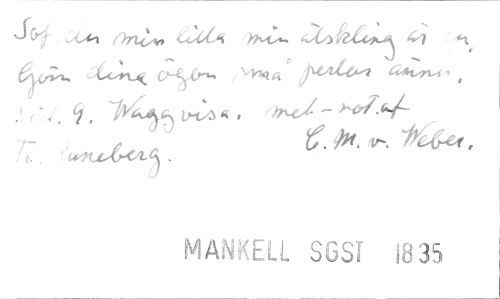 Sof du min lilla min älskling är du,
Göm dina ögon små perlor ännu.
sid. 9. Waggvisa. mel-not. af
C. M. v. Weber.
Luneberg.
MANKELL SGST 1835